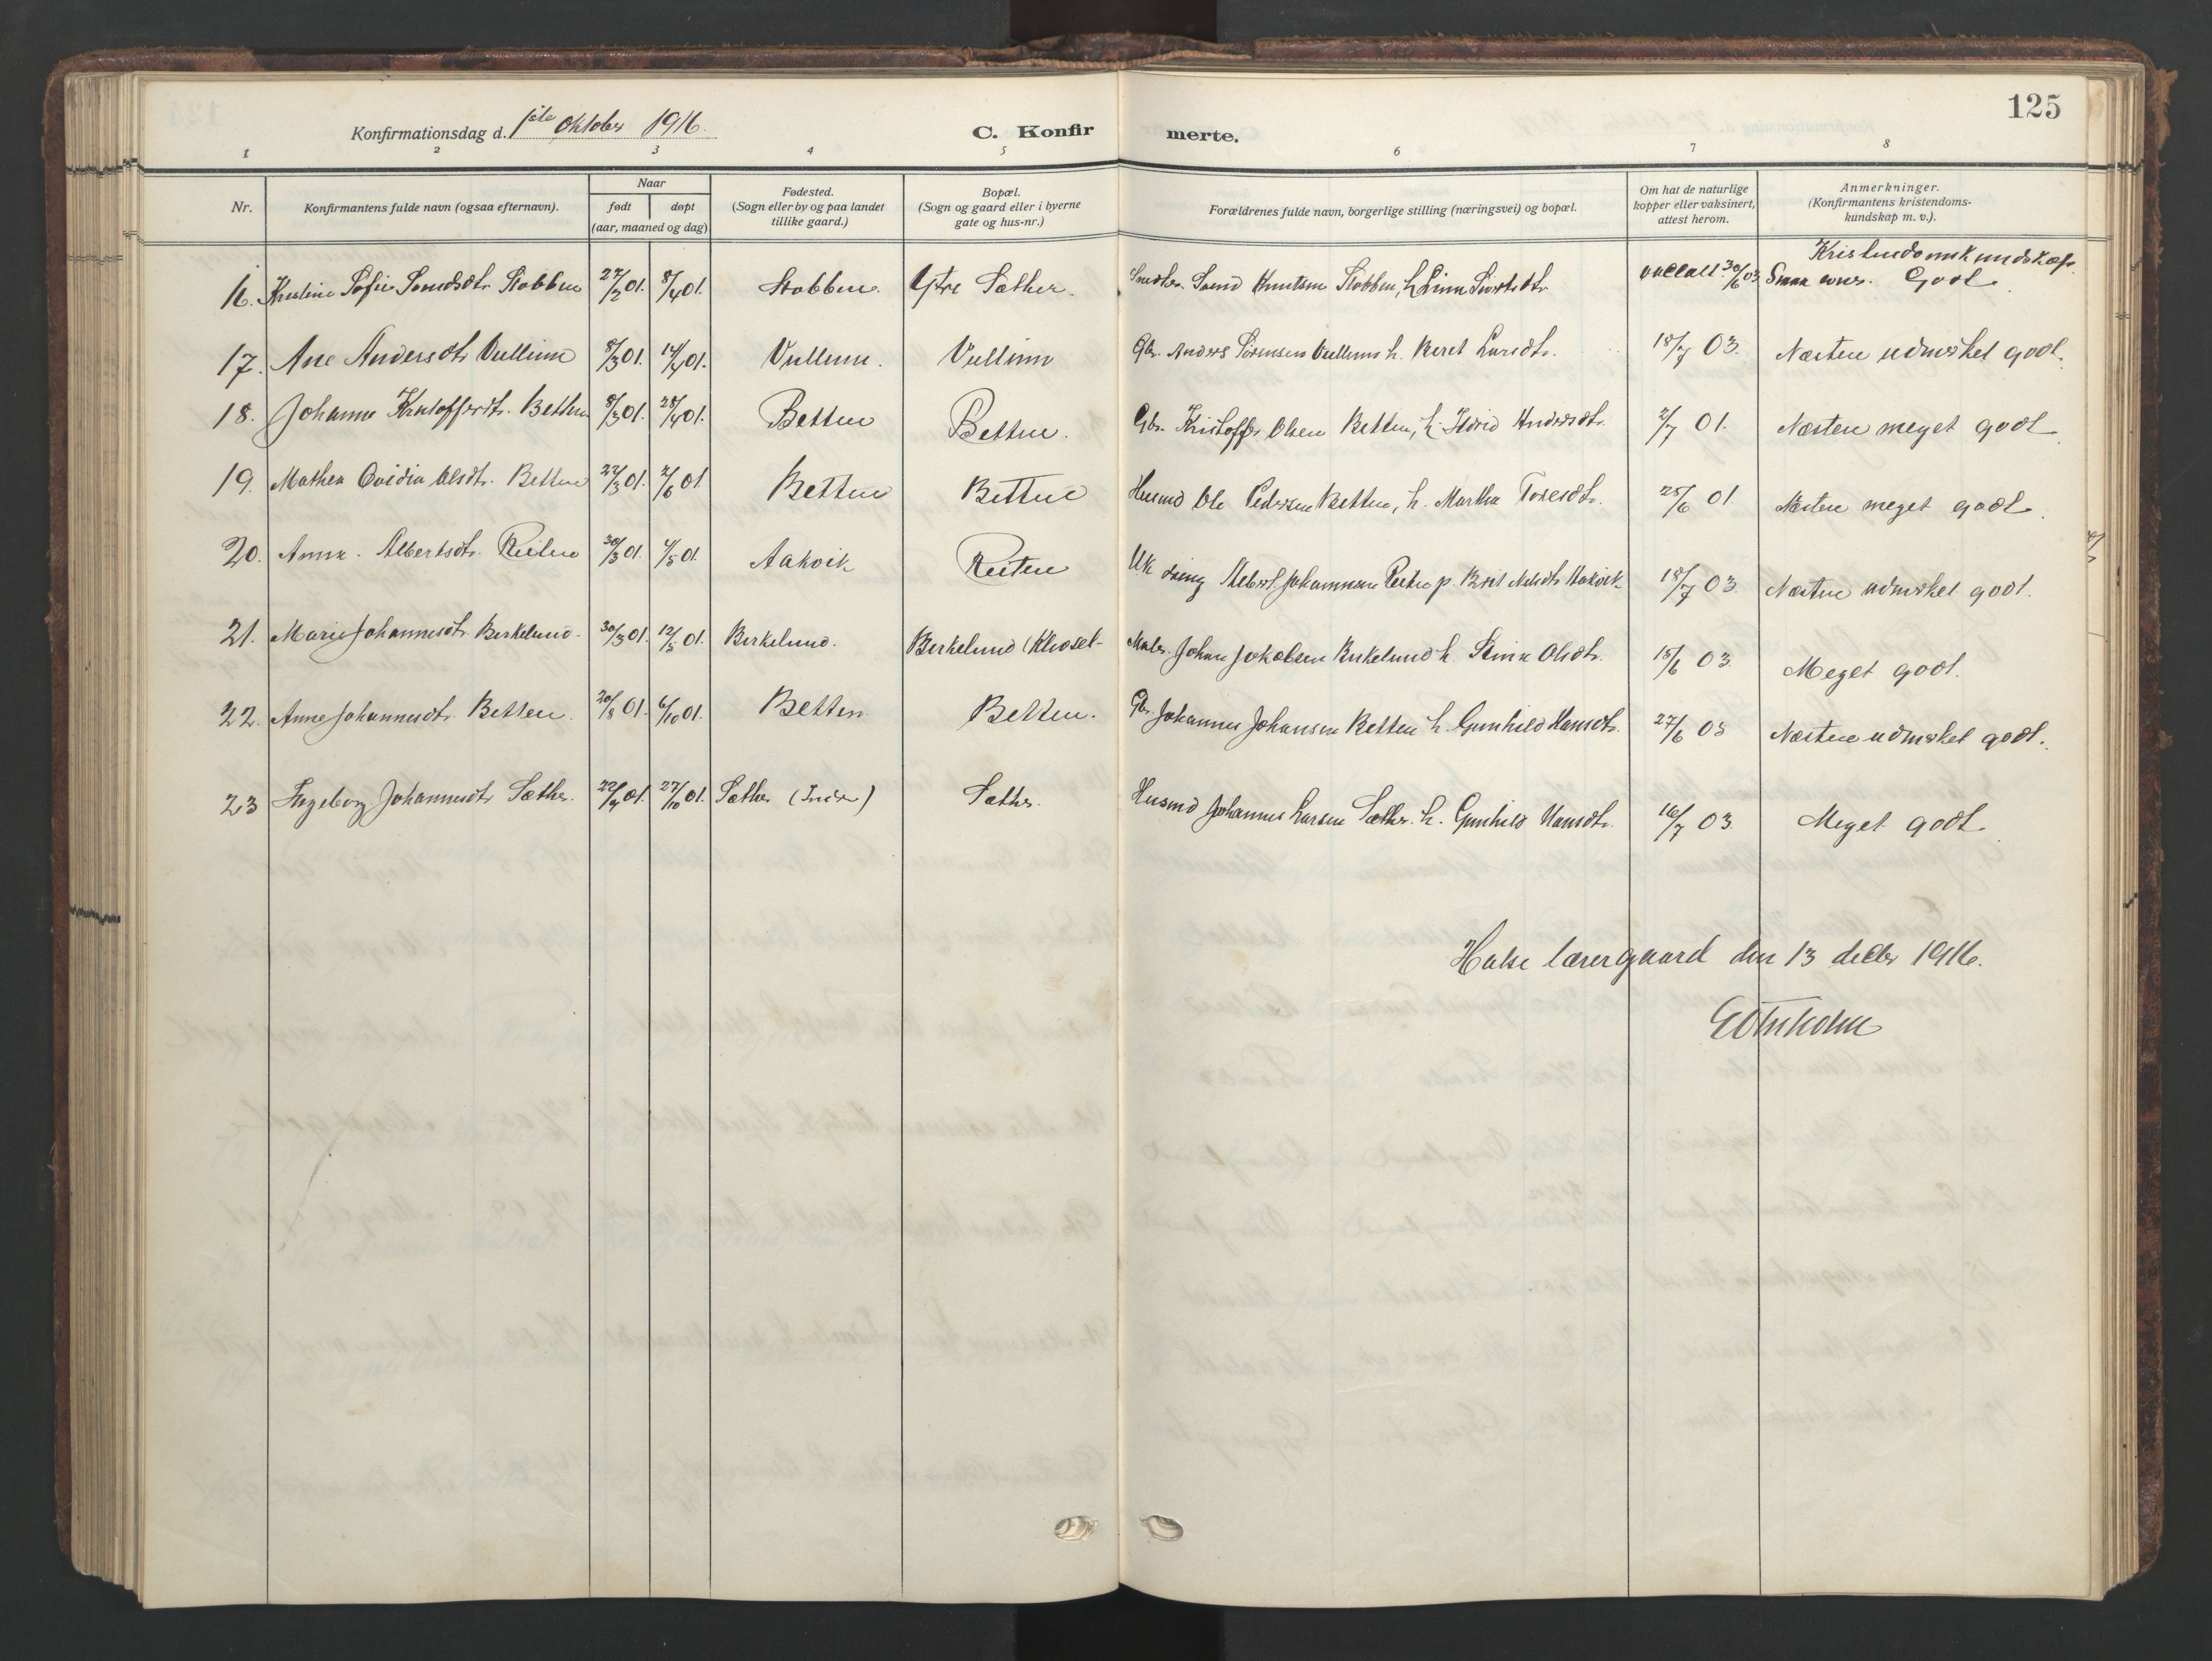 125
Konfirmationsdag d. 1ste Oktober 1916.
C. Konfirmerte.
1 2 3 4 5 6 7 8
Nr. | Konfirmantens fulde navn (ogsaa efternavn). | Naar født | døpt (aar, maaned og dag) | Fødested. (Sogn eller by og paa landet tillike gaard.) | Bopæl. (Sogn og gaard eller i byerne gate og hus-nr.) | Forældrenes fulde navn, borgerlige stilling (næringsvei) og bopæl. | Om hat de naturlige kopper eller vaksinert, attest herom. | Anmerkninger. (Konfirmantens kristendomskundskap m. v.).
Kristendomskundskap.
16. Kristine Sofie Svendsdtr. Stobben | 27/2 01. | 8/4 01. | Stobben. | Ytre Sæther. | Svend Knutsen Stobben, h. | 30/6 03. | Godt.
17. Ane Andersdtr Vullum | 8/3 01. | 14/4 01. | Vullum. | Vullum | Gbr. Anders Sörensen Vullum h. Beret Larsdtr. | 18/7 03. | Næsten udmerket godt.
18. Johanne Kristoffersdtr. Betten | 8/3 01. | 28/4 01. | Betten | Betten. | Gbr. Kristoffer Olsen Betten, h. Andersdtr. | 2/7 01. | Næsten meget godt.
19. Mathea Ovidia Olsdtr. Betten | 22/3 01. | 2/6 01 | Betten | Betten | Husmd Ole Pedersen Betten, h. Martha Toresdtr. | 25/6 01. | Næsten meget godt.
20. Anna Albertsdtr. Reiten | 30/3 01. | 4/5 01. | Aakvik | Reiten | Uk dreng Albert Johannesen Reiten p. Aakvik | 18/7 03. | Næsten udmerket godt.
21. Marie Johannesdtr. Berkelund. | 30/3 01. | 12/5 01. | Berkelund. | Berkelund | Maler. Johan Jakobsen Berkelund h. Olsdtr. | 15/6 03. | Meget godt.
22. Anne Johannesdtr. Betten. | 20/8 01. | 6/10 01. | Betten. | Betten. | Gbr. Johannes Johansen Betten h. Gunhild Hansdtr. | 27/6 03 | Næsten udmerket godt.
23 Ingeborg Johannesdtr Sæther. | 22/9 01. | 27/10 01. | Sæther (Indre) | Sæther. | Husmd Johannes Larsen Sæther. h. Gunhild Hansdtr. | 16/7 03. | Meget godt.
Halse lærergaard den 13 decbr 1916.